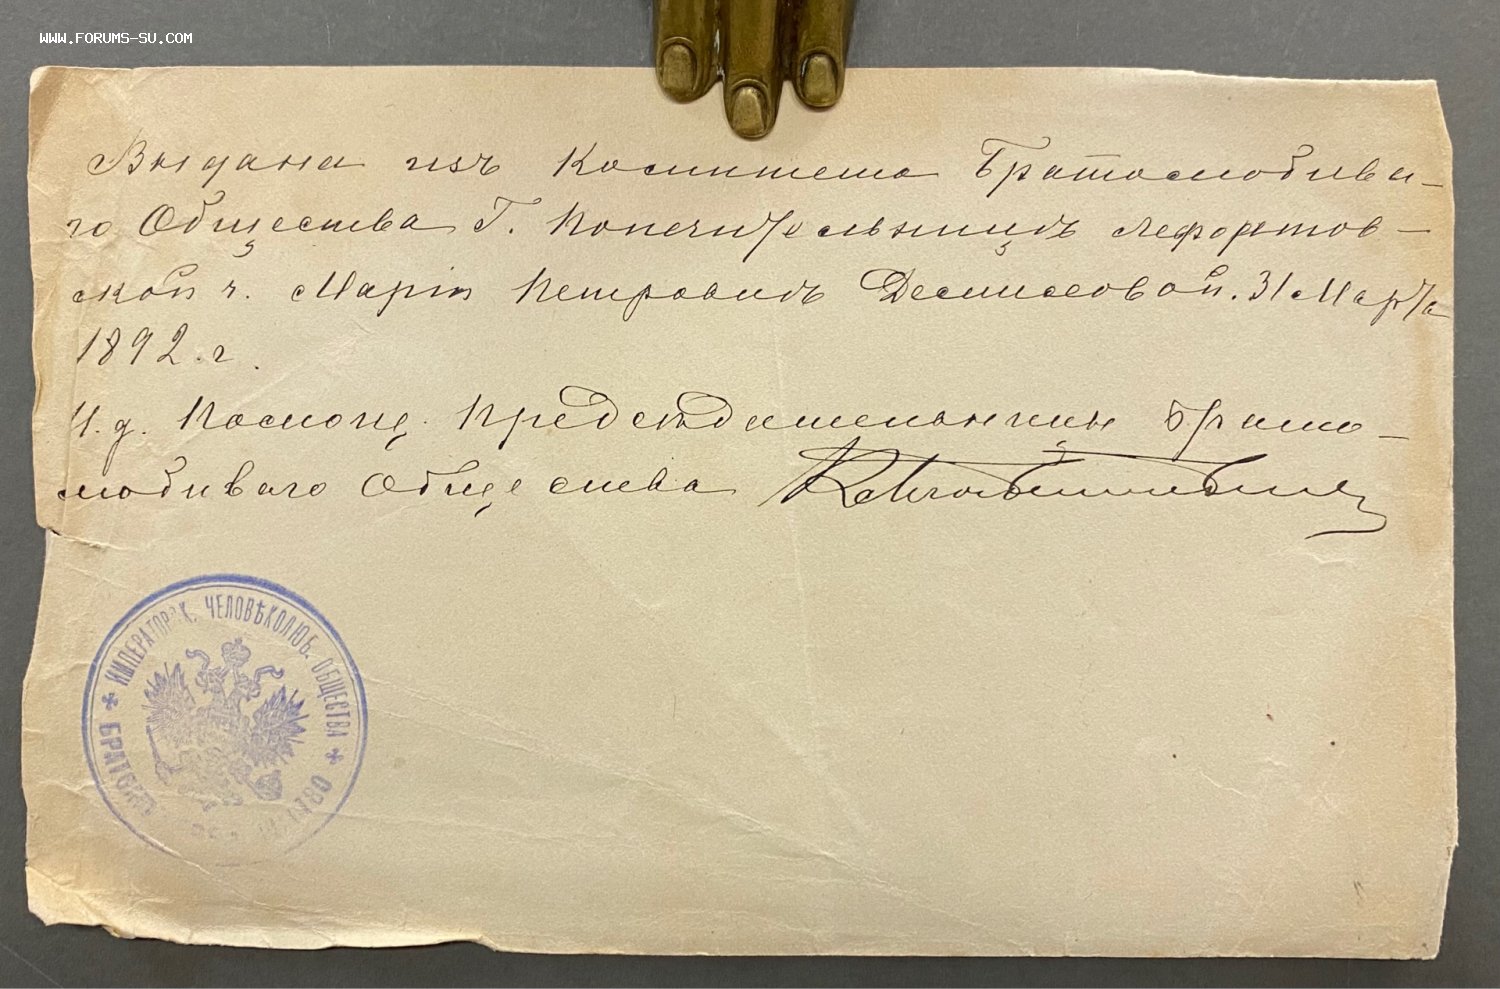 WWW.FORUMS-SU.COM
Выдана изъ Комитета Братолюбива-
го Общества Г. Попечительницѣ Лефортов-
ской ч. Маріи Петровнѣ
31 Марта
1892. г.
И. д. Помощ. Предсѣдательницы Брато-
любиваго Общества
ИМПЕРАТОРСК. ЧЕЛОВѢКОЛЮБ. ОБЩЕСТВА